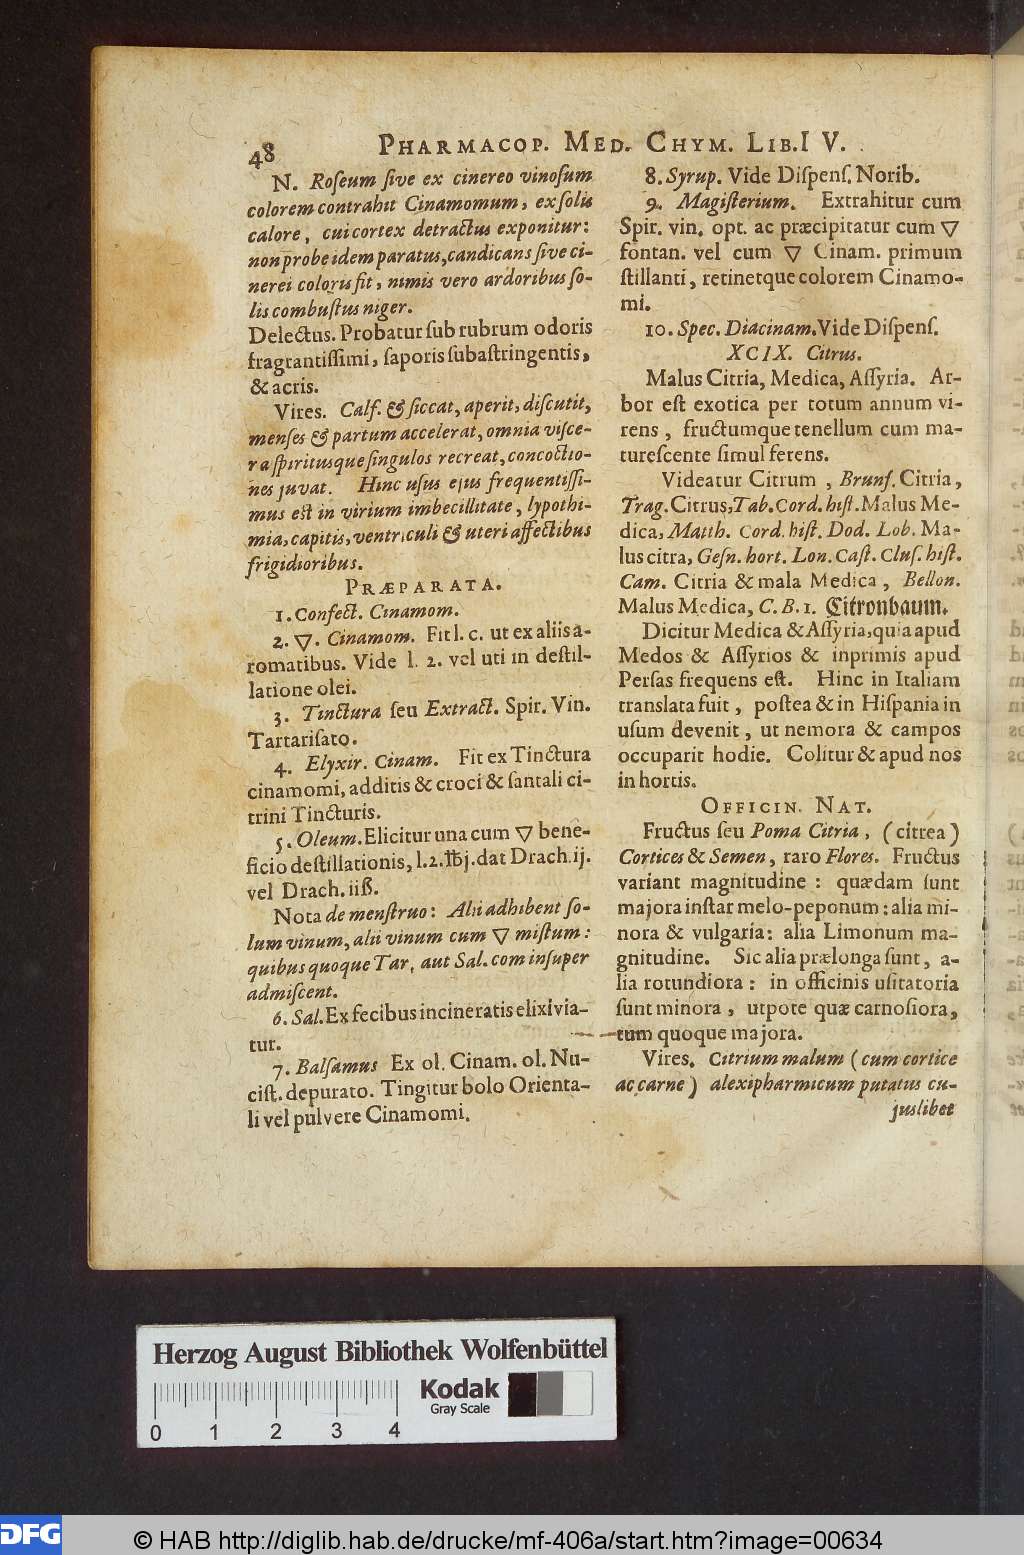 48 PHARMACOP. MED. CHYM. LIB.I V.
N. Roſeum ſive ex cinereo vinoſum
colorem contrahit Cinamomum, ex ſolis
calore, cui cortex detractus exponitur:
non probe idem paratus, candicans ſive ci-
nerei coloris fit, nimis vero ardoribus ſo-
lis combuſtus niger.
Delectus. Probatur ſub rubrum odoris
fragrantiſſimi, ſaporis ſubaſtringentis,
& acris.
Vires. Calf. & ſiccat, aperit, diſcutit,
menſes & partum accelerat, omnia viſce-
ra ſpiritusque ſingulos recreat, concoctio-
nes juvat. Hinc uſus ejus frequentiſſi-
mus est in virium imbecillitate, lypothi-
mia, capitis, ventriculi & uteri affectibus
frigidioribus.
PRÆPARATA.
1. Confect. Cinamom.
2. ▽. Cinamom. Fit l. c. ut ex aliis a-
romatibus. Vide l. 2. vel uti in deſtil-
latione olei.
3. Tinctura ſeu Extract. Spir. Vin.
Tartariſato.
4. Elyxir. Cinam. Fit ex Tinctura
cinamomi, additis & croci & ſantali ci-
trini Tincturis.
5. Oleum. Elicitur una cum ▽ bene-
ficio deſtillationis, l. 2. ℔j. dat Drach. ij.
vel Drach. iiß.
Nota de menſtruo: Alii adhibent ſo-
lum vinum, alii vinum cum ▽ miſtum:
quibus quoque Tar. aut Sal. com inſuper
admiſcent.
6. Sal. Ex fecibus incineratis elixivia-
tur.
7. Balſamus Ex ol. Cinam. ol. Nu-
ciſt. depurato. Tingitur bolo Orienta-
li vel pulvere Cinamomi.
8. Syrup. Vide Diſpenſ. Norib.
9. Magiſterium. Extrahitur cum
Spir. vin. opt. ac præcipitatur cum ▽
fontan. vel cum ▽ Cinam. primum
ſtillanti, retinetque colorem Cinamo-
mi.
10. Spec. Diacinam. Vide Diſpenſ.
XCIX. Citrus.
Malus Citria, Medica, Aſſyria. Ar-
bor eſt exotica per totum annum vi-
rens, fructumque tenellum cum ma-
tureſcente ſimul ferens.
Videatur Citrum, Brunſ. Citria,
Trag. Citrus, Tab. Cord. hiſt. Malus Me-
dica, Matth. Cord. hiſt. Dod. Lob. Ma-
lus citra, Geſn. hort. Lon. Caſt. Cluſ. hiſt.
Cam. Citria & mala Medica, Bellon.
Malus Medica, C. B. 1. Citronbaum.
Dicitur Medica & Aſſyria, quia apud
Medos & Aſſyrios & inprimis apud
Perſas frequens eſt. Hinc in Italiam
translata fuit, poſtea & in Hiſpania in
uſum devenit, ut nemora & campos
occuparit hodie. Colitur & apud nos
in hortis.
OFFICIN. NAT.
Fructus ſeu Poma Citria, (citrea)
Cortices & Semen, raro Flores. Fructus
variant magnitudine: quædam ſunt
majora inſtar melo-peponum: alia mi-
nora & vulgaria: alia Limonum ma-
gnitudine. Sic alia prælonga ſunt, a-
lia rotundiora: in officinis uſitatoria
ſunt minora, utpote quæ carnoſiora,
tum quoque majora.
Vires. Citrium malum (cum cortice
ac carne) alexipharmicum putatus cu-
juslibet
Herzog August Bibliothek Wolfenbüttel
0 1 2 3 4
Kodak
Gray Scale
DFG
© HAB http://diglib.hab.de/drucke/mf-406a/start.htm?image=00634